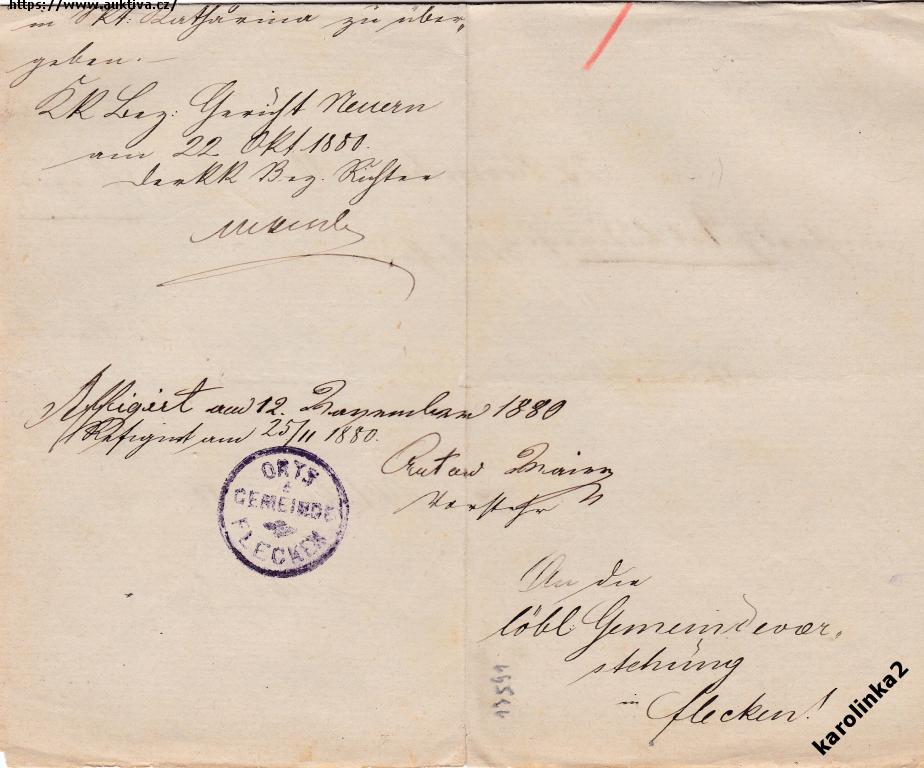 https://www.auktiva.cz/
in Skt: Katharina zu über„
geben.—
KK Bez: Gericht Neuern
am 22 Okt 1880.
Der KK Bez. Richter
Affigirt am 12. November 1880
Refigirt am 25/11 1880.
Anton
Vorsteher
ORTS
GEMEINDE
FLECKEN
An die
löbl: Gemeindevor„
stehung
in Flecken!
13591
karolinka2